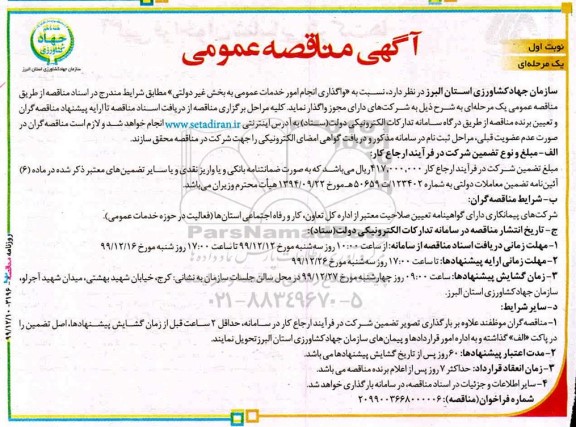 نوبت اول
یک مرحله‌ای
آگهی مناقصه عمومی
جهاد
کشاورزی
سازمان جهاد کشاورزی استان البرز
سازمان جهاد کشاورزی استان البرز در نظر دارد، نسبت به «واگذاری انجام امور خدمات عمومی به بخش غیر دولتی» مطابق شرایط مندرج در اسناد مناقصه از طریق
مناقصه عمومی یک مرحله‌ای به شرح ذیل به شرکت‌های دارای مجوز واگذار نماید. کلیه مراحل برگزاری مناقصه از دریافت اسناد مناقصه تا ارایه پیشنهاد مناقصه‌گران
و تعیین برنده مناقصه از طریق درگاه سامانه تدارکات الکترونیکی دولت (ستاد) به آدرس اینترنتی www.setadiran.ir انجام خواهد شد و لازم است مناقصه‌گران در
صورت عدم عضویت قبلی، مراحل ثبت نام در سامانه مذکور و دریافت گواهی امضای الکترونیکی را جهت شرکت در مناقصه محقق سازند.
الف- مبلغ و نوع تضمین شرکت در فرآیند ارجاع کار:
مبلغ تضمین شرکت در فرآیند ارجاع کار ۴۱۷,۰۰۰,۰۰۰ ریال می‌باشد که به صورت ضمانتنامه بانکی و یا واریز نقدی و یا سایر تضمین‌های معتبر ذکر شده در ماده (۶)
آئین‌نامه تضمین معاملات دولتی به شماره ۱۲۳۴۰۲/ت۵۰۶۵۹هـ مورخ ۱۳۹۴/۰۹/۲۲ هیأت محترم وزیران می‌باشد.
ب- شرایط مناقصه گران:
شرکت‌های پیمانکاری دارای گواهینامه تعیین صلاحیت معتبر از اداره کل تعاون، کار و رفاه اجتماعی استان‌ها (فعالیت در حوزه خدمات عمومی).
ج- تاریخ انتشار مناقصه در سامانه تدارکات الکترونیکی دولت (ستاد):
۱- مهلت زمانی دریافت اسناد مناقصه از سامانه: از ساعت ۱۰:۰۰ روز سه‌شنبه مورخ ۹۹/۱۲/۱۲ تا ساعت ۱۷:۰۰ روز شنبه مورخ ۹۹/۱۲/۱۶
۲- مهلت زمانی ارایه پیشنهادها: تا ساعت ۱۷:۰۰ روز سه‌شنبه مورخ ۹۹/۱۲/۲۶
۳- زمان گشایش پیشنهادها: ساعت ۰۹:۰۰ روز چهارشنبه مورخ ۹۹/۱۲/۲۷ در محل سالن جلسات سازمان به نشانی: کرج، خیابان شهید بهشتی، میدان شهید آجرلو،
سازمان جهاد کشاورزی استان البرز.
د- سایر شرایط:
۱- مناقصه‌گران موظفند علاوه بر بارگذاری تصویر تضمین شرکت در فرآیند ارجاع کار در سامانه، حداقل ۲ ساعت قبل از زمان گشایش پیشنهادها، اصل تضمین را
در پاکت «الف» گذاشته و به اداره امور قراردادها و پیمان‌های سازمان جهاد کشاورزی استان البرز تحویل نمایند.
۲- مدت اعتبار پیشنهادها: ۶۰ روز پس از تاریخ گشایش پیشنهادها می باشد.
۳- زمان انعقاد قرارداد: حداکثر ۷ روز پس از اعلام برنده مناقصه می باشد.
۴- سایر اطلاعات و جزئیات در اسناد مناقصه، در سامانه بارگذاری خواهد شد.
شماره فراخوان (مناقصه): ۲۰۹۹۰۰۳۶۶۸۰۰۰۰۰۶
ParsNamadData
۰۲۱-۸۸۳۴۹۶۷۰-۵